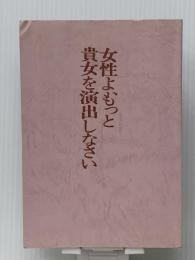 女性よ、もっと
貴女を演出しなさい